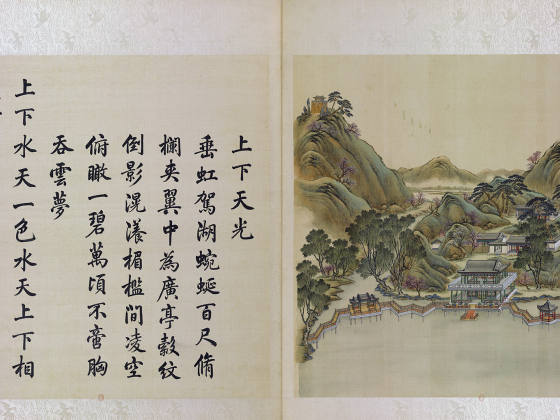 上下天光
垂虹駕湖蜿蜒百尺脩
欄夾翼中為廣亭縠紋
倒影滉瀁楣檻間凌空
俯瞰一碧萬頃不啻胸
吞雲夢
上下水天一色水天上下相